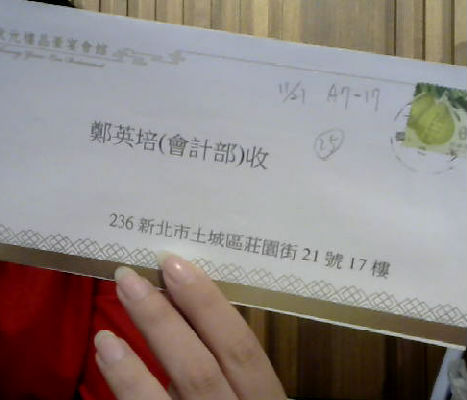 樓品臺宴會館
11/27 A7-17
25
鄭英培(會計部)收
236 新北市土城區莊園街 21 號 17 樓